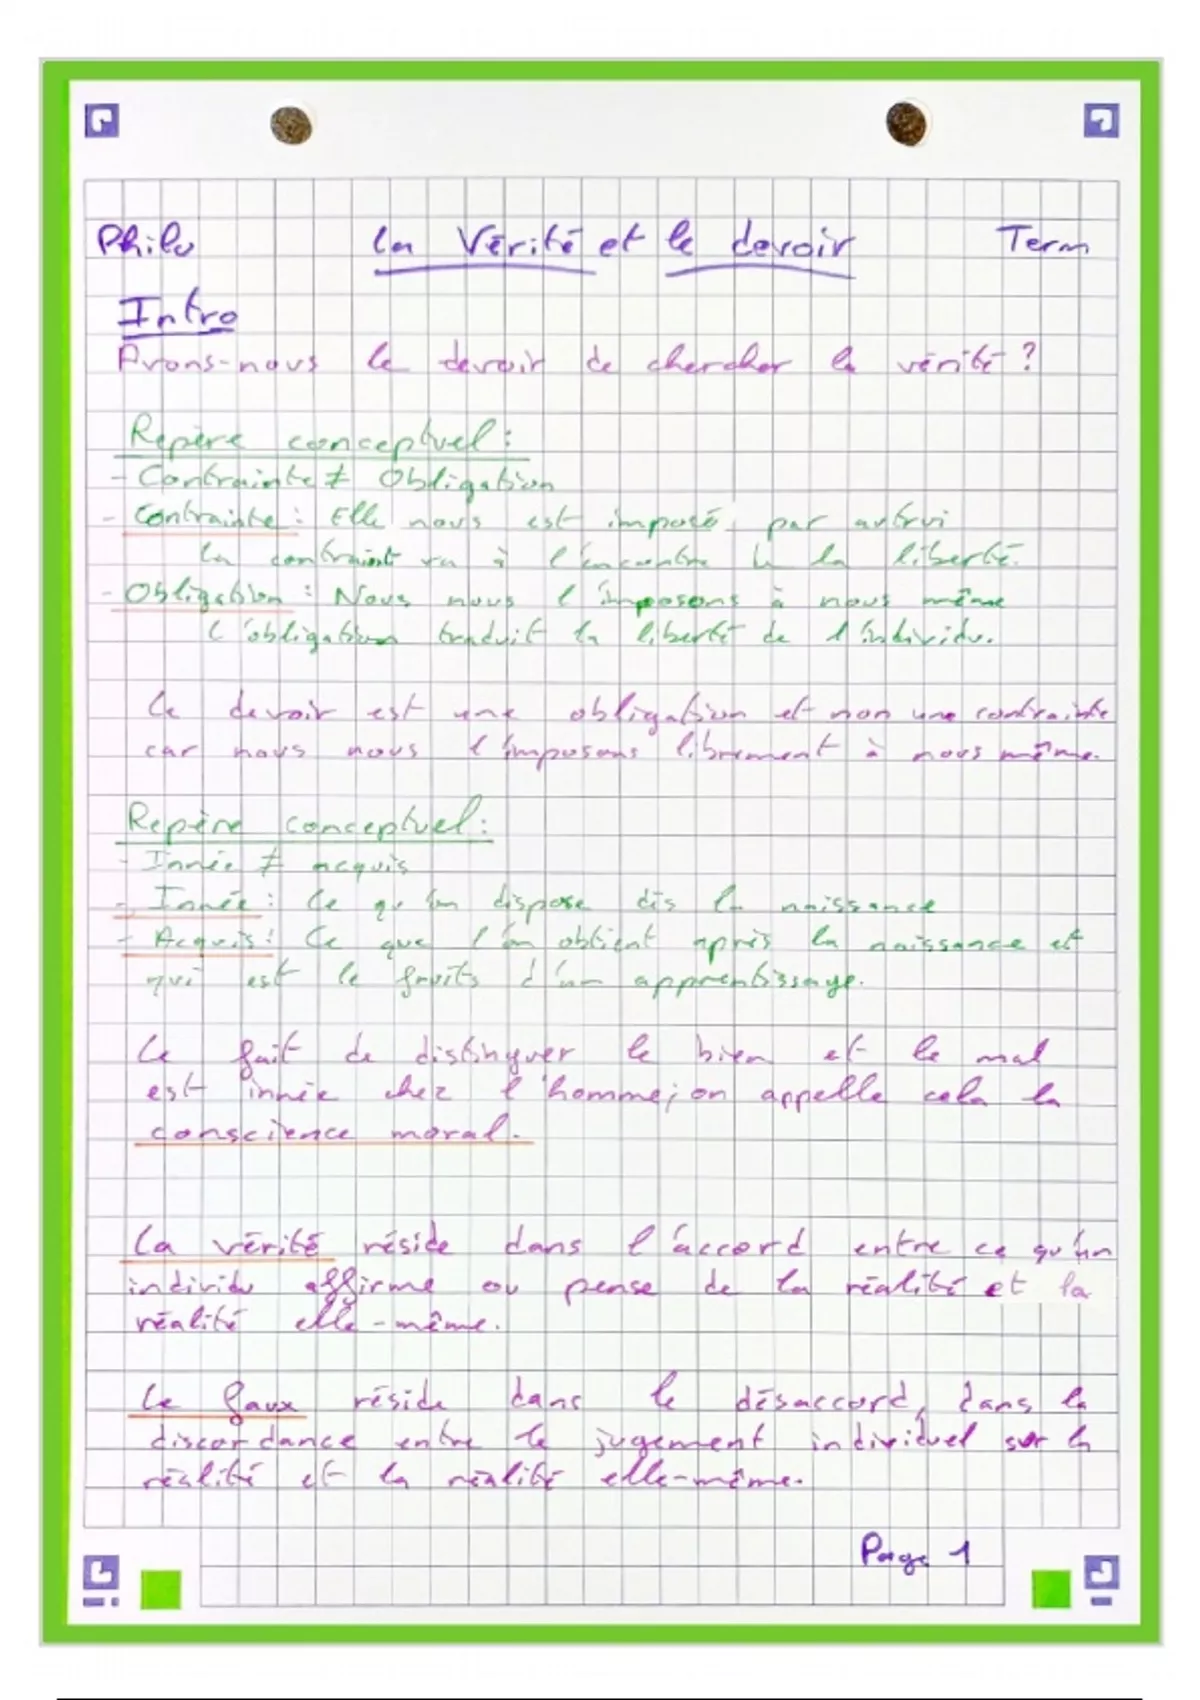 Philo La Vérité et le devoir Term
Intro
Avons-nous le devoir de chercher la vérité ?
Repère conceptuel :
- Contrainte ≠ Obligation
- Contrainte : Elle nous est imposé, par autrui
la contraint va à l'encontre de la liberté.
- Obligation : Nous nous l'imposons à nous même
L'obligation traduit la liberté de l'individu.
Le devoir est une obligation et non une contrainte
car nous nous l'imposons librement à nous même.
Repère conceptuel :
- Innée ≠ acquis
- Innée : Ce qu'on dispose dès la naissance
- Acquis : Ce que l'on obtient après la naissance et
qui est le fruits d'un apprentissage.
Le fait de distinguer le bien et le mal
est innée chez l'homme ; on appelle cela la
conscience moral.
La vérité réside dans l'accord entre ce qu'un
individu affirme ou pense de la réalité et la
réalité elle-même.
Le faux réside dans le désaccord, dans la
discordance entre le jugement individuel sur la
réalité et la réalité elle-même.
Page 1